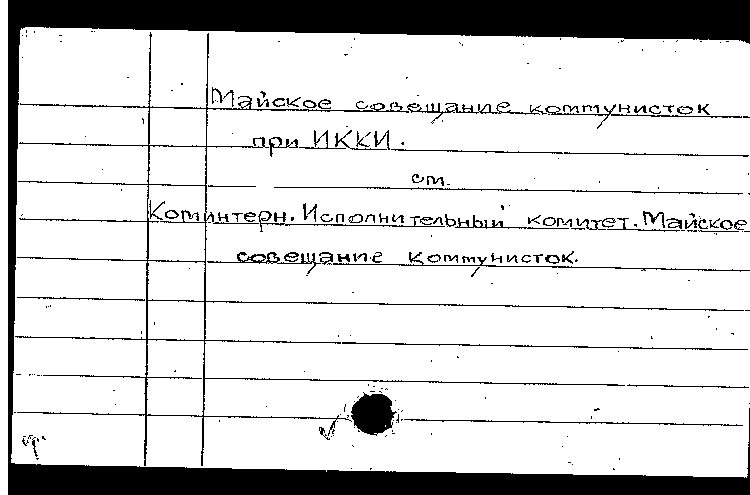 Майское совещание коммунисток
при ИККИ.
см.
Коминтерн. Исполнительный комитет. Майское
совещание коммунисток.